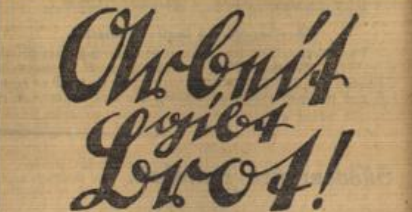 Arbeit
gibt
Brot!